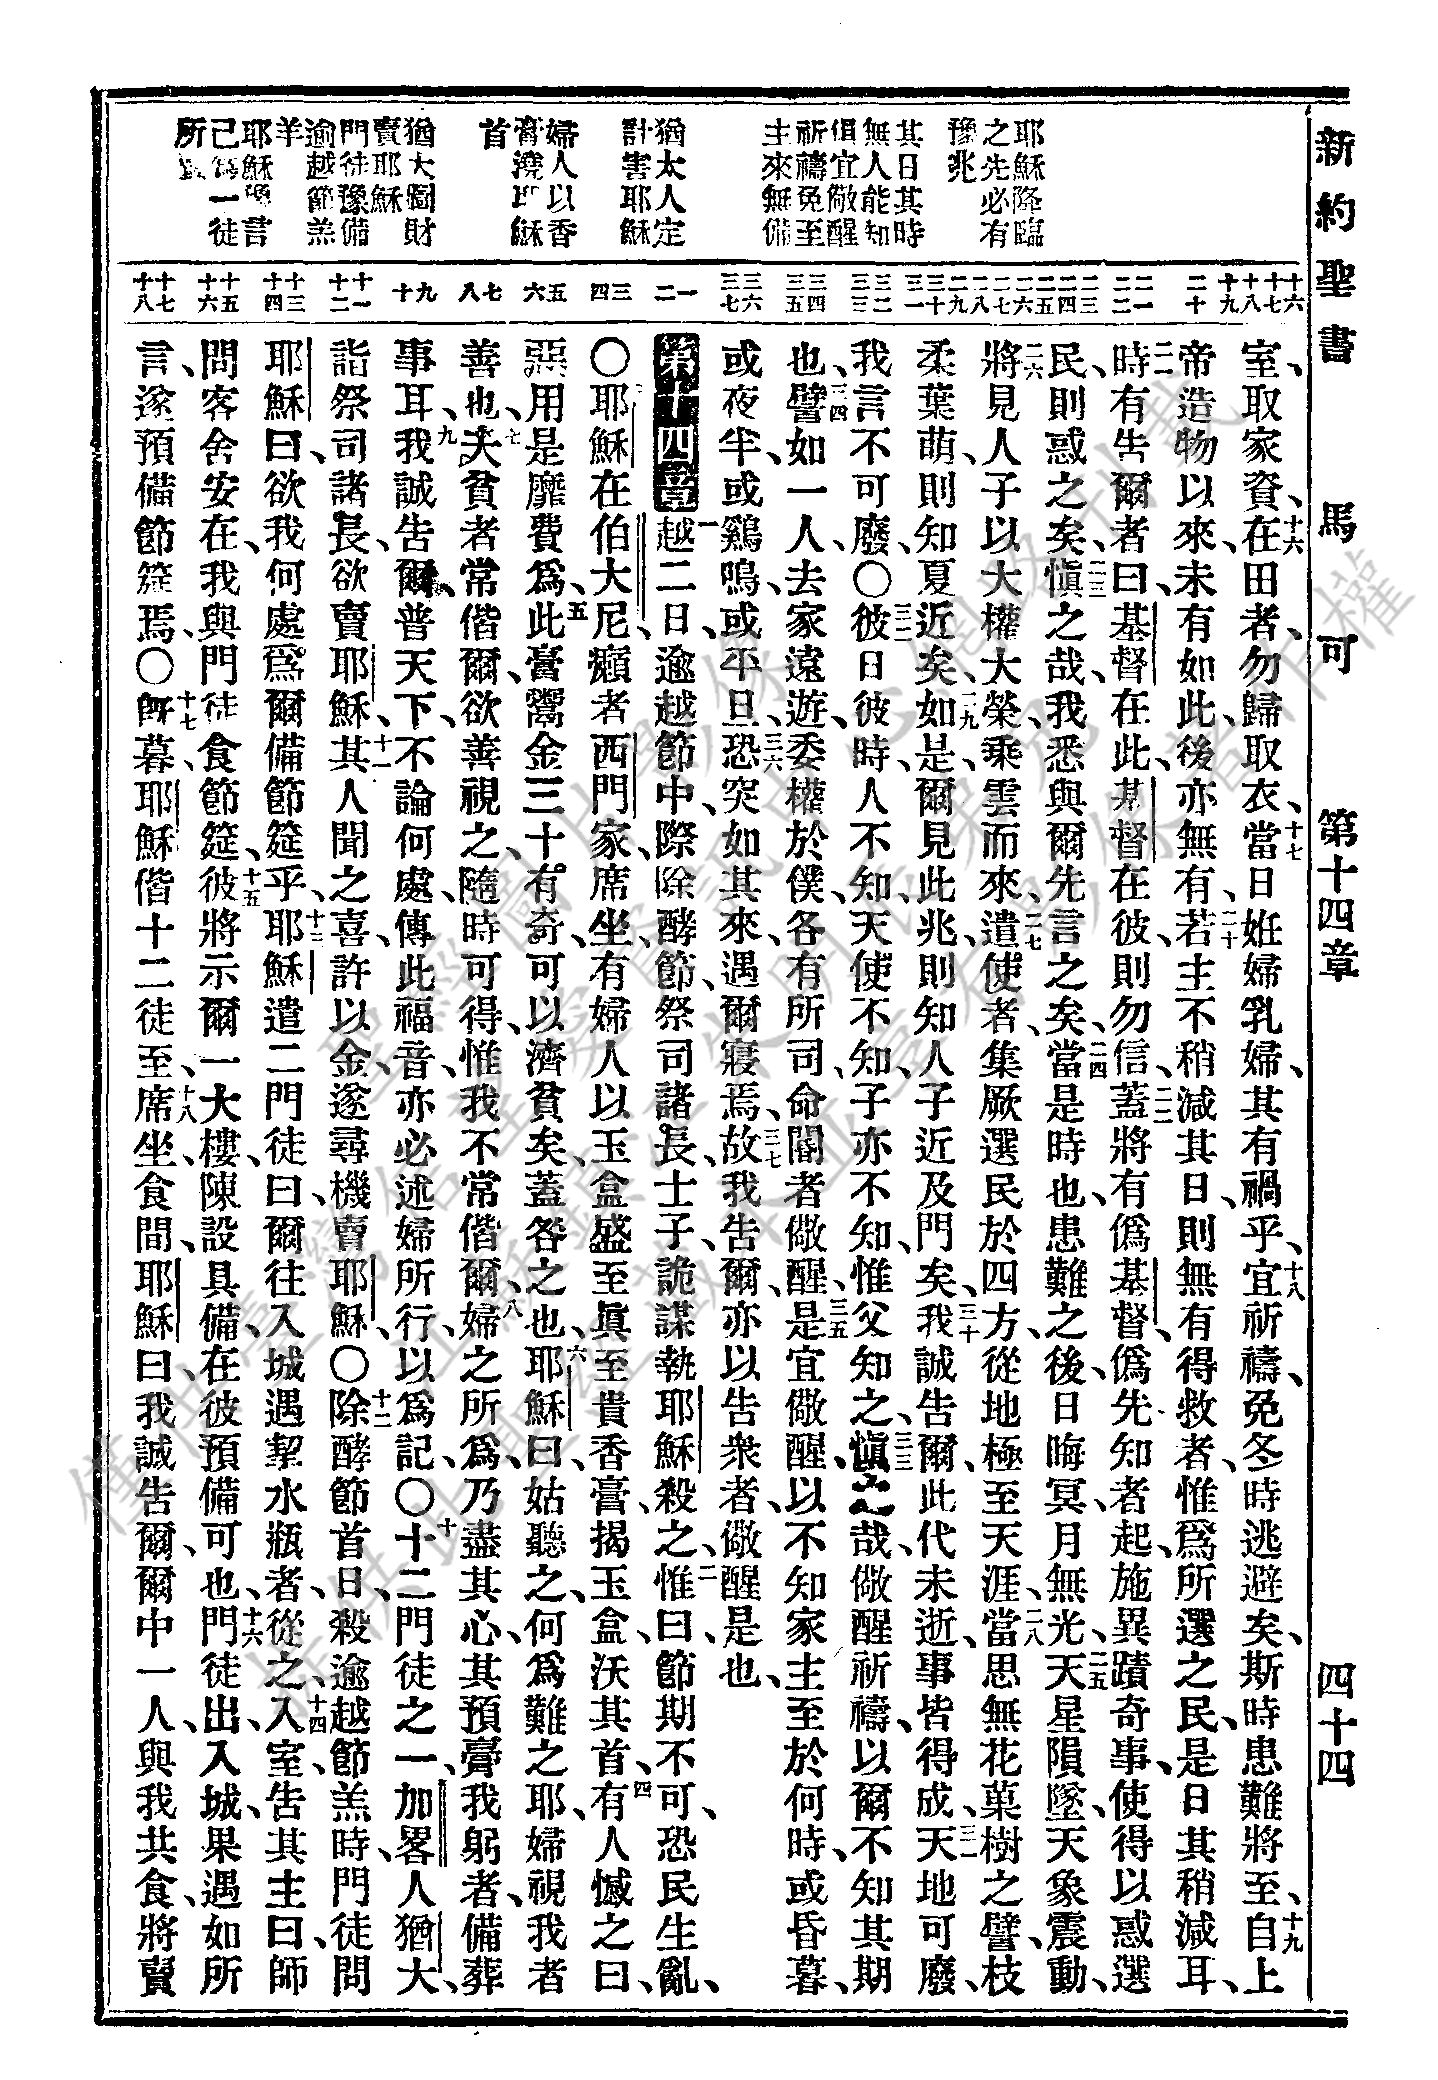 新約聖書 馬可 第十四章 四十四
耶穌降臨
之先必有
豫兆
其日其時
無人能知
俱宜儆醒
祈禱免至
主來無備
猶太人定
計害耶穌
婦人以香
膏澆耶穌
首
猶大圖財
賣耶穌
門徒豫備
逾越節羔
羊
耶穌豫言
己為一徒
所賣
十六 十七 十八 十九 二十 二一 二二 二三 二四 二五 二六 二七 二八 二九 三十 三一 三二 三三 三四 三五 三六 三七 一 二 三 四 五 六 七 八 九 十 十一 十二 十三 十四 十五 十六 十七 十八
室、取家資、十六在田者、勿歸取衣、十七當日姙婦乳婦、其有禍乎、十八宜祈禱、免冬時逃避矣、斯時患難將至、十九自上
帝造物以來、未有如此、後亦無有、二十若主不稍減其日、則無有得救者、惟爲所選之民、是日其稍減耳、
二一時有告爾者曰、基督在此、基督在彼、則勿信、二二蓋將有僞基督、僞先知者起、施異蹟奇事、使得以惑選
民、則惑之矣、二三愼之哉、我悉與爾先言之矣、二四當是時也、患難之後、日晦冥、月無光、二五天星隕墜、天象震動、
二六將見人子以大權大榮、乘雲而來、二七遣使者、集厥選民於四方、從地極至天涯、二八當思無花菓樹之譬、枝
柔葉萌、則知夏近矣、二九如是、爾見此兆、則知人子近及門矣、三十我誠告爾、此代未逝、事皆得成、三一天地可廢、
我言不可廢、〇三二彼日彼時、人不知、天使不知、子亦不知、惟父知之、三三愼之哉、儆醒祈禱、以爾不知其期
也、三四譬如一人、去家遠遊、委權於僕、各有所司、命閽者儆醒、三五是宜儆醒、以不知家主至於何時、或昏暮、
或夜半、或鷄鳴、或平旦、三六恐突如其來、遇爾寢焉、三七故我告爾、亦以告衆者、儆醒是也、
第十四章 一越二日、逾越節中、際除酵節、祭司諸長士子、詭謀執耶穌、殺之、二惟曰、節期不可、恐民生亂、
〇三耶穌在伯大尼、癩者西門家、席坐、有婦人以玉盒盛至眞至貴香膏、揭玉盒、沃其首、四有人憾之曰、
惡用是靡費爲、五此膏鬻金三十有奇、可以濟貧矣、蓋咎之也、六耶穌曰、姑聽之、何爲難之耶、婦視我者
善也、七夫貧者常偕爾、欲善視之、隨時可得、惟我不常偕爾、八婦之所爲、乃盡其心、其預膏我躬者、備葬
事耳、九我誠告爾、普天下、不論何處、傳此福音、亦必述婦所行、以爲記、〇十十二門徒之一、加畧人猶大、
詣祭司諸長、欲賣耶穌、十一其人聞之喜、許以金、遂尋機賣耶穌、〇十二除酵節首日、殺逾越節羔時、門徒問
耶穌曰、欲我何處爲爾備節筵乎、十三耶穌遣二門徒曰、爾往入城、遇挈水瓶者、從之、十四入室、告其主曰、師
問客舍安在、我與門徒食節筵、十五彼將示爾一大樓、陳設具備、在彼預備可也、十六門徒出、入城、果遇如所
言、遂預備節筵焉、〇十七旣暮、耶穌偕十二徒至、十八席坐、食間、耶穌曰、我誠告爾、爾中一人、與我共食、將賣